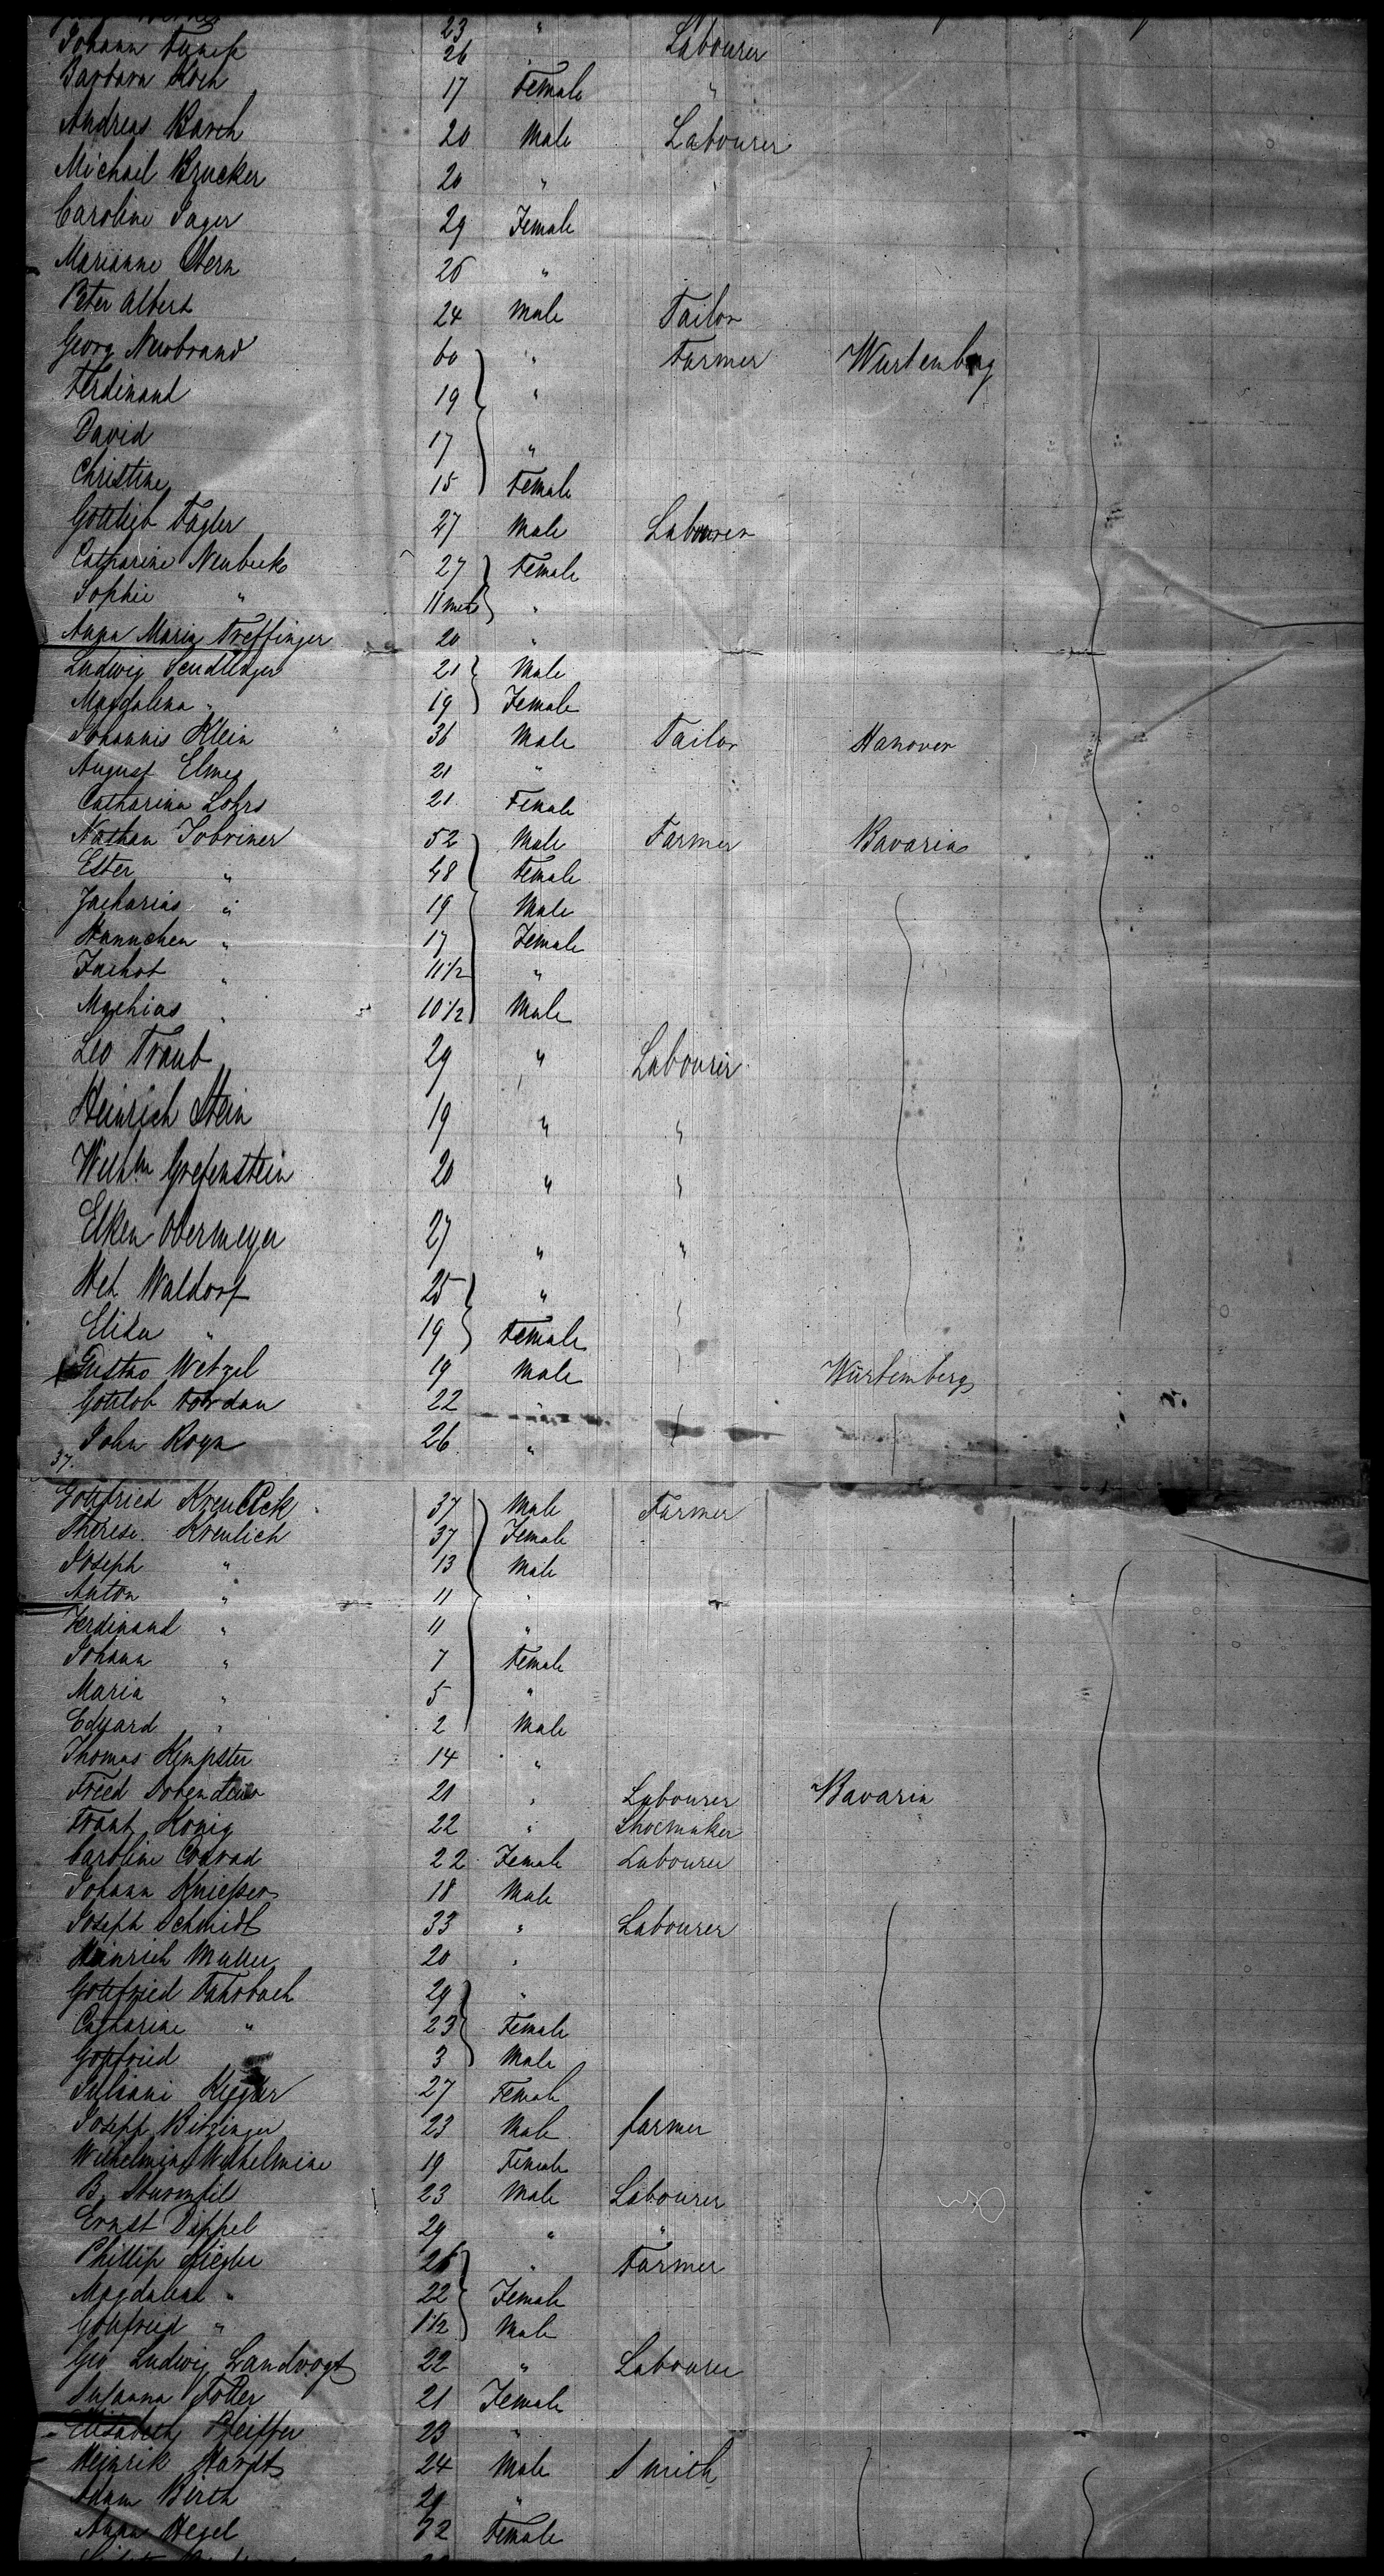 23 "
Johann 26 Labourer
Barbara Koch 17 Female "
Andreas Barch 20 Male Labourer
Michail Brucker 20 "
Caroline Jager 29 Female
Marianne Stern 26 "
Peter Albert 24 Male Tailor
Georg Neubrand 60 " Farmer Wurtemberg
Ferdinand 19 "
David 17 "
Christine 15 Female
Gottlieb Fagler 27 Male Labourer
Catharine Neubeck 27 Female
Sophie " 11 mts "
Anna Maria Treffinger 20 "
Ludwig 21 Male
Magdalena " 19 Female
Johannis Klein 36 Male Tailor Hanover
August Elmer 21 "
Catharina Lohrs 21 Female
Nathan Sobriner 52 Male Farmer Bavaria
Ester " 48 Female
Zacharias " 19 Male
Hannchen " 17 Female
" 11 1/2 "
Machias " 10 1/2 Male
Leo Traub 29 " Labourer
Heinrich Stein 19 " "
Wilhm Grefenstein 20 " "
Elken Obermeyer 27 " "
Hch Waldorf 25 "
Elisa " 19 Female
Gustav Wetzel 19 Male Würtemberg
Gottlob 22 "
John Roya 26 "
37.
Gottfried 37 Male Farmer
Therese Kreulich 37 Female
Joseph " 13 Male
Anton " 11 "
Ferdinand " 11 "
Johann " 7 Female
Maria " 5 "
Eduard " 2 Male
Thomas Kempster 14 "
Fried 21 " Labourer Bavaria
König 22 " Shoemaker
Caroline Conrad 22 Female Labourer
Johann 18 Male
Joseph Schmidt 33 " Labourer
Heinrich Muller 20 "
Gottfried Fahrbach 29 "
Catharine " 23 Female
Gottfried 3 Male
Juliani 27 Female
Joseph Bitzinger 23 Male farmer
Wilhelmine Wilhelmine 19 Female
B. Sturmfels 23 Male Labourer
Ernst Dippel 29 " "
Phillip 26 " Farmer
Magdalena " 22 Female
Gottfried " 1 1/2 Male
Geo Ludwig Landvogt 22 " Labourer
Susanna 21 Female
Elisabeth Pfeiffer 23 "
Heinrik Hardt 24 Male Smith
Adam Birth 29 "
Anna Hegel 22 Female